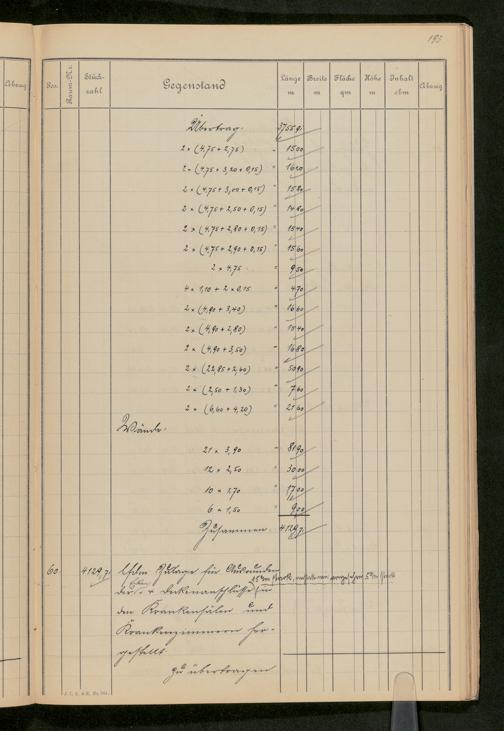 193
Abzug
Pos.
Raum-Nr.
Stück-
zahl
Gegenstand
Länge
m
Breite
m
Fläche
qm
Höhe
m
Inhalt
cbm
Abzug
Übertrag.
2 × (4,75 + 2,75) " 15 00
2 × (4,75 + 3,20 + 0,15) "
2 × (4,75 + 3,00 + 0,15) " 15 80
2 × (4,75 + 2,50 + 0,15) " 14 80
2 × (4,75 + 2,80 + 0,15) " 15 40
2 × (4,75 + 2,90 + 0,15) " 15 60
2 × 4,75 " 9 50
4 × 1,10 + 2 × 0,15 " 4 70
2 × (4,90 + 3,40) " 16 60
2 × (4,90 + 2,80) " 15 40
2 × (4,90 + 3,50) " 16 80
2 × (22,85 + 2,60) " 50 90
2 × (2,50 + 1,30) " 7 60
2 × (6,60 + 4,20) " 21 60
Wände.
21 × 3,90 " 81 90
12 × 2,50 " 30 00
10 × 1,70 " 17 00
6 × 1,50 " 9 00
Zusammen
60
lfdm Zulage für Ausrunden
der
Deckenanschlüsse in
den Krankensälen und
Krankenzimmern her-
gestellt
zu übertragen